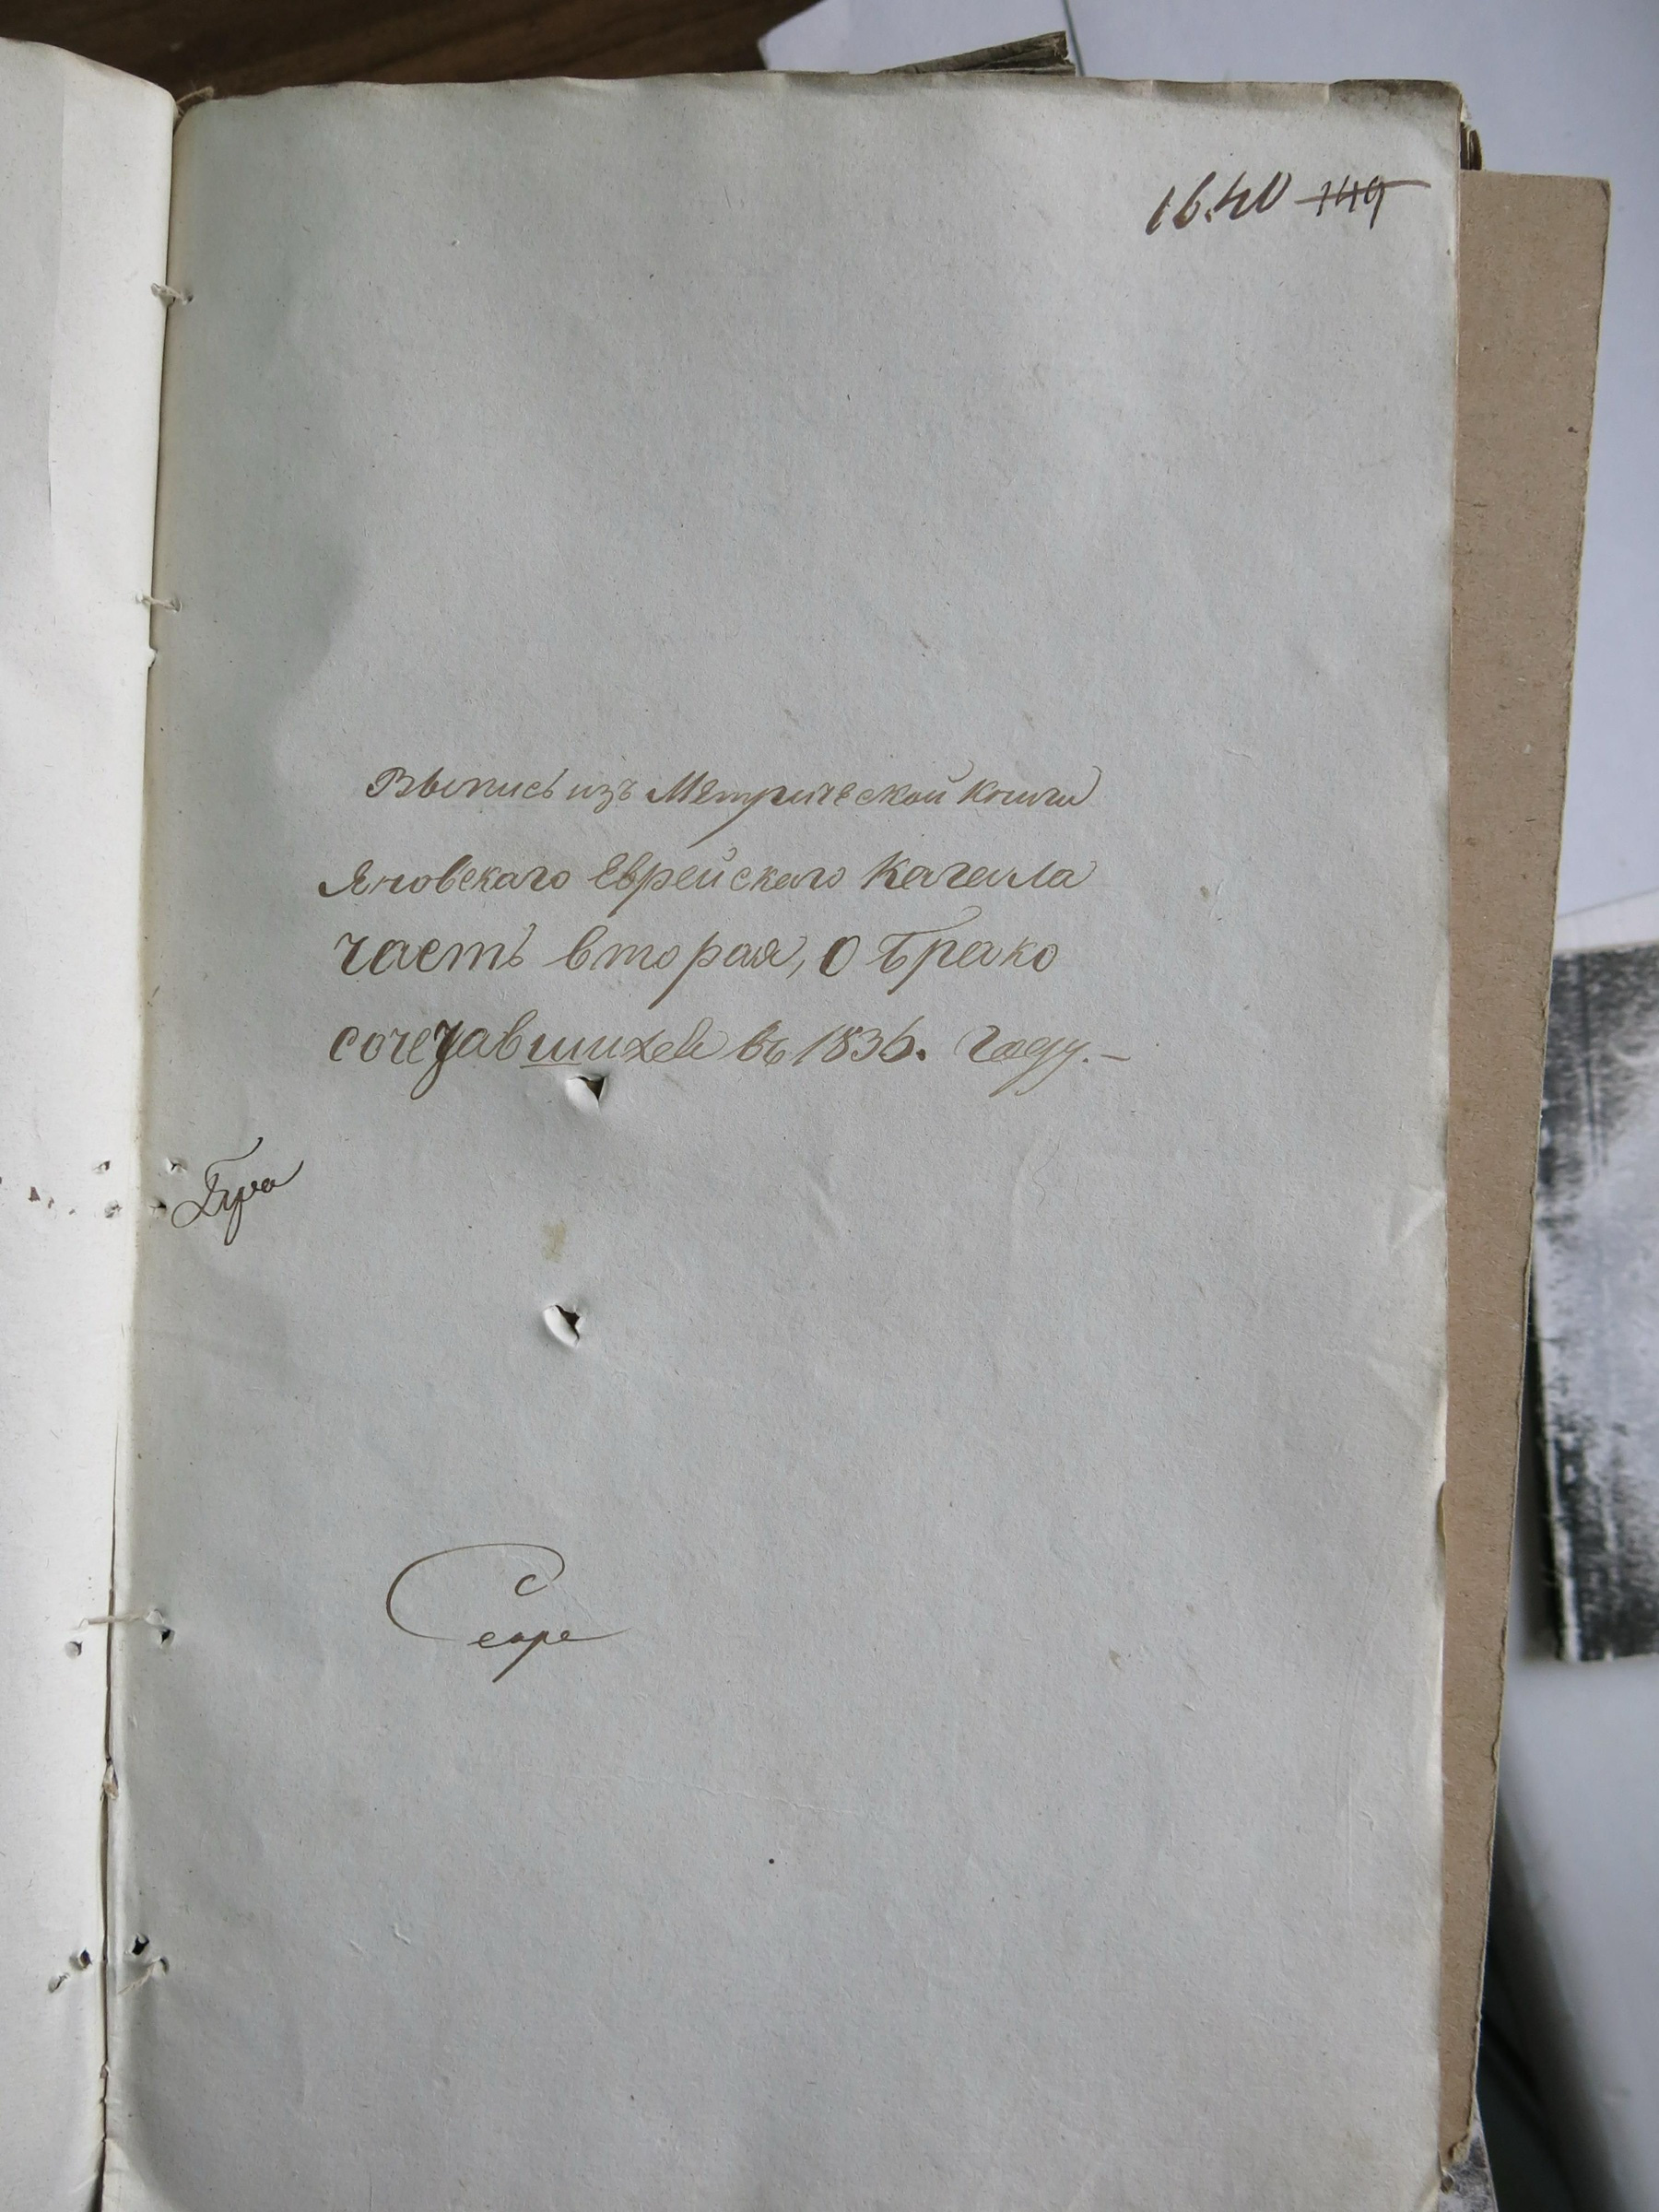 16.40 149
Выпись изъ Метрической книги
Яновскаго Еврейскаго Кагала
часть вторая, О Брако
сочетавшихся въ 1836. Году.—